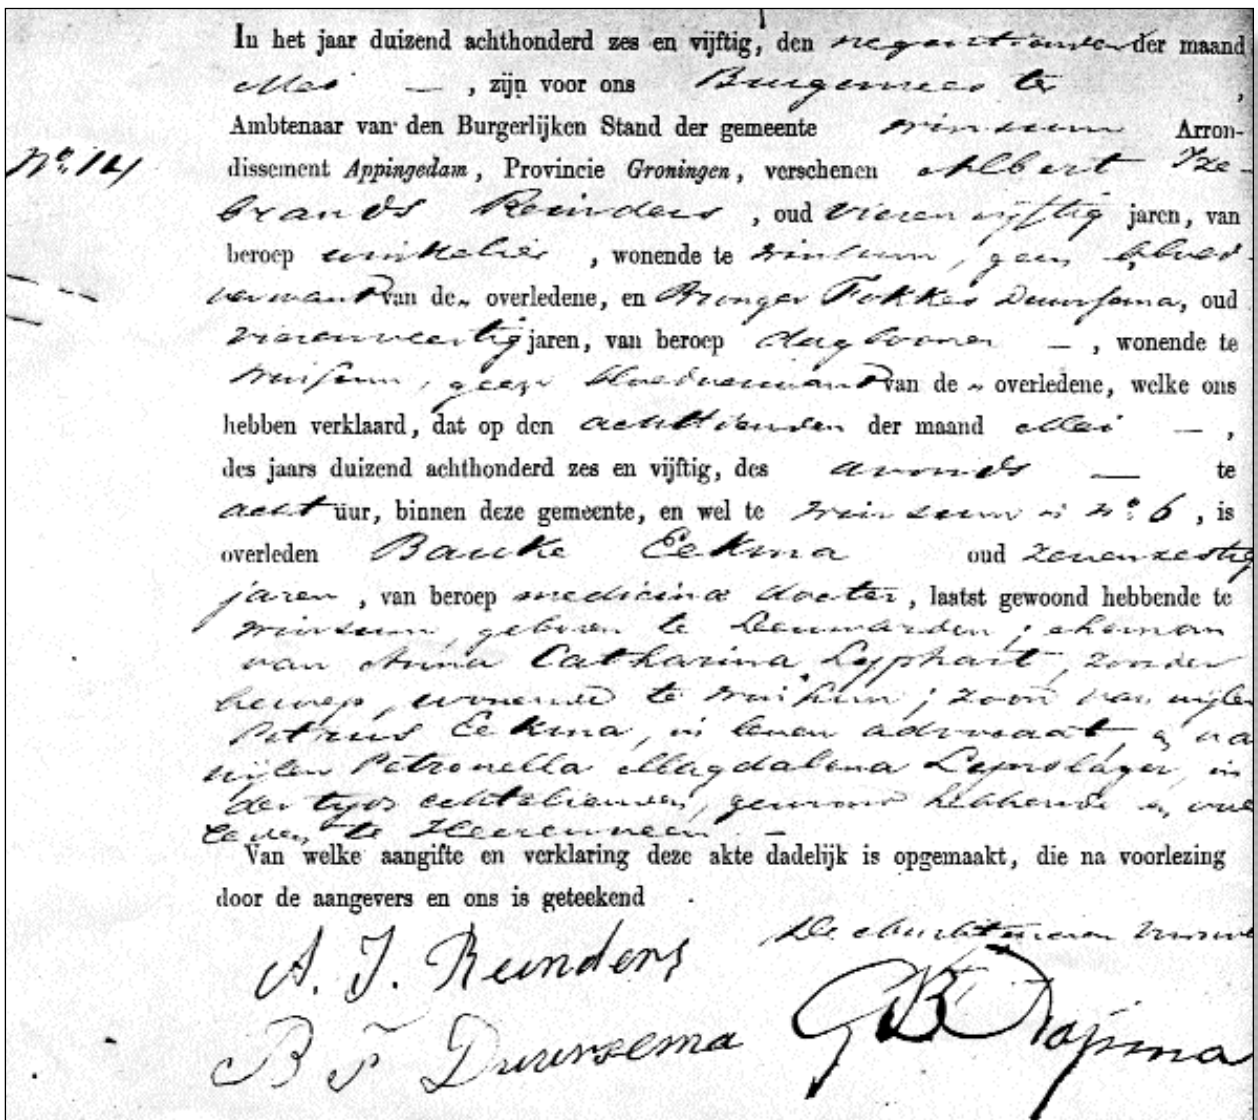 In het jaar duizend achthonderd zes en vijftig, den negentienden der maand
Mei — , zijn voor ons Burgemeester ,
Ambtenaar van den Burgerlijken Stand der gemeente Winsum Arron-
No. 14
dissement Appingedam, Provincie Groningen, verschenen Albert Yze-
brands Reinders , oud vierenvijftig jaren, van
beroep winkelier , wonende te Winsum, geen bloed-
verwant van de „ overledene, en Fokkes Duursema, oud
vierenveertig jaren, van beroep daglooner — , wonende te
Winsum, geen bloedverwant van de „ overledene, welke ons
hebben verklaard, dat op den achttienden der maand Mei — ,
des jaars duizend achthonderd zes en vijftig, des avonds — te
acht uur, binnen deze gemeente, en wel te Winsum in no. 6 , is
overleden Bauke Eekma oud zevenzestig
jaren , van beroep medicina docter , laatst gewoond hebbende te
Winsum, geboren te Leeuwarden ; eheman
van Anna Catharina Lyphart, zonder
beroep, wonende te Winsum ; zoon van wijlen
Petrus Eekma, in leven advocaat, en va
wijlen Petronella Magdalena Lepeslager, in
der tijd echtelieden, gewoond hebbende en over
leden te Heerenveen. —
Van welke aangifte en verklaring deze akte dadelijk is opgemaakt, die na voorlezing
door de aangevers en ons is geteekend .
De Ambtenaar voorn
A. J. Reinders
B F Duursema
G B